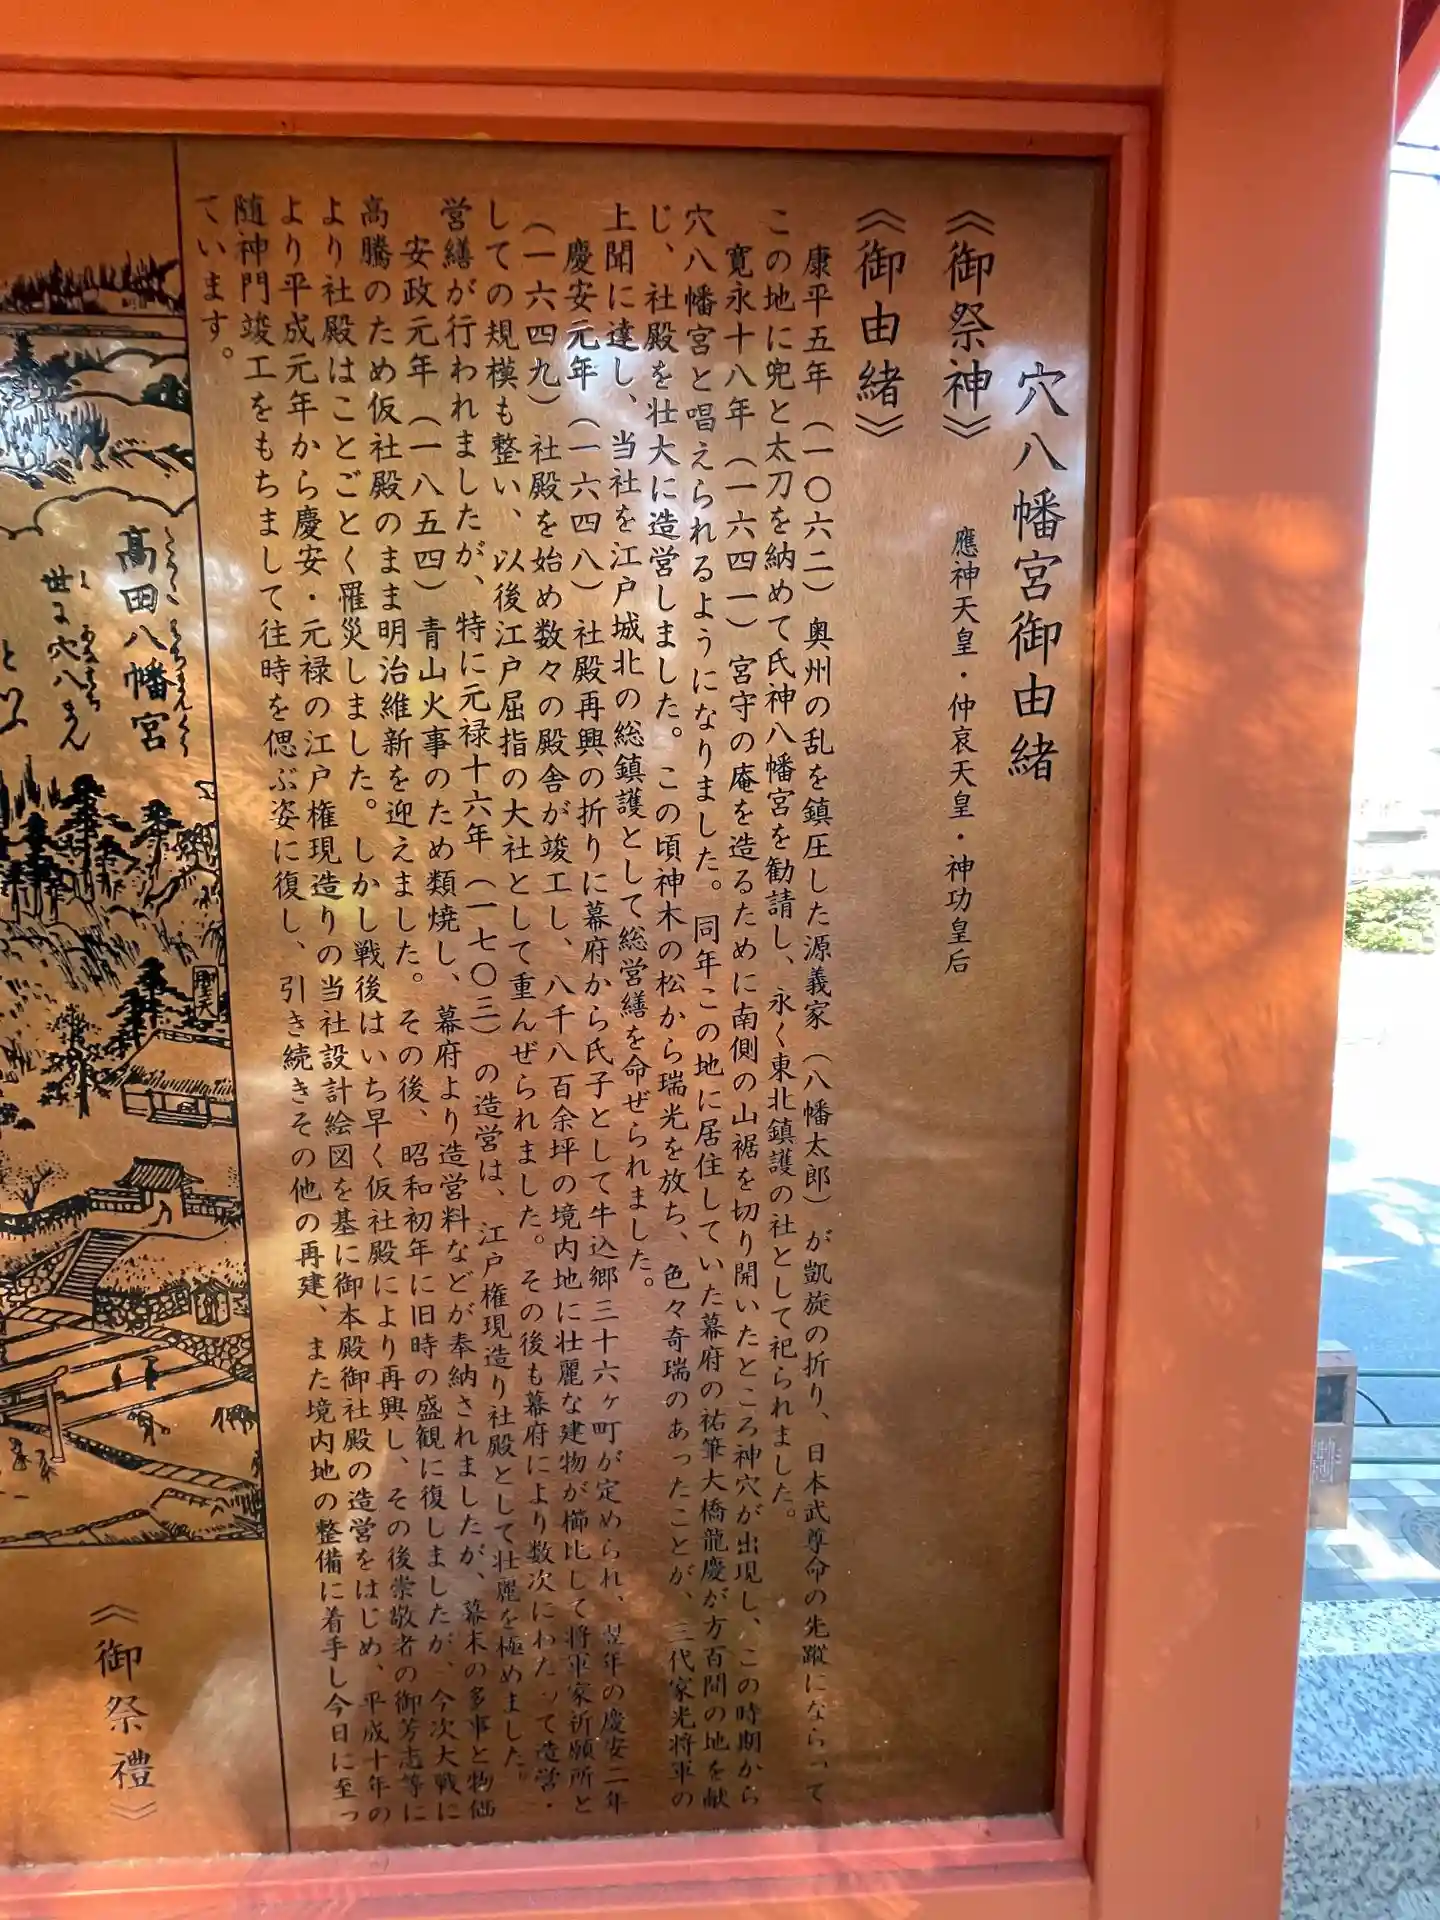 穴八幡宮御由緒
《御祭神》 應神天皇・仲哀天皇・神功皇后
《御由緒》
康平五年(一〇六二)奥州の乱を鎮圧した源義家(八幡太郎)が凱旋の折り、日本武尊命の先蹤にならって
この地に兜と太刀を納めて氏神八幡宮を勧請し、永く東北鎮護の社として祀られました。
寛永十八年(一六四一)宮守の庵を造るために南側の山裾を切り開いたところ神穴が出現し、この時期から
穴八幡宮と唱えられるようになりました。同年この地に居住していた幕府の祐筆大橋龍慶が方百間の地を献
じ、社殿を壮大に造営しました。この頃神木の松から瑞光を放ち、色々奇瑞のあったことが、三代家光将軍の
上聞に達し、当社を江戸城北の総鎮護として総営繕を命ぜられました。
慶安元年(一六四八)社殿再興の折りに幕府から氏子として牛込郷三十六ヶ町が定められ、翌年の慶安二年
(一六四九)社殿を始め数々の殿舎が竣工し、八千八百余坪の境内地に壮麗な建物が櫛比して将軍家祈願所と
しての規模も整い、以後江戸屈指の大社として重んぜられました。その後も幕府により数次にわたって造営・
営繕が行われましたが、特に元禄十六年(一七〇三)の造営は、江戸権現造り社殿として壮麗を極めました。
安政元年(一八五四)青山火事のため類焼し、幕府より造営料などが奉納されましたが、幕末の多事と物価
高騰のため仮社殿のまま明治維新を迎えました。その後、昭和初年に旧時の盛観に復しましたが、今次大戦に
より社殿はことごとく罹災しました。しかし戦後はいち早く仮社殿により再興し、その後崇敬者の御芳志等に
より平成元年から慶安・元禄の江戸権現造りの当社設計絵図を基に御本殿御社殿の造営をはじめ、平成十年の
随神門竣工をもちまして往時を偲ぶ姿に復し、引き続きその他の再建、また境内地の整備に着手し今日に至っ
ています。
高田八幡宮
世に穴八まん
《御祭禮》